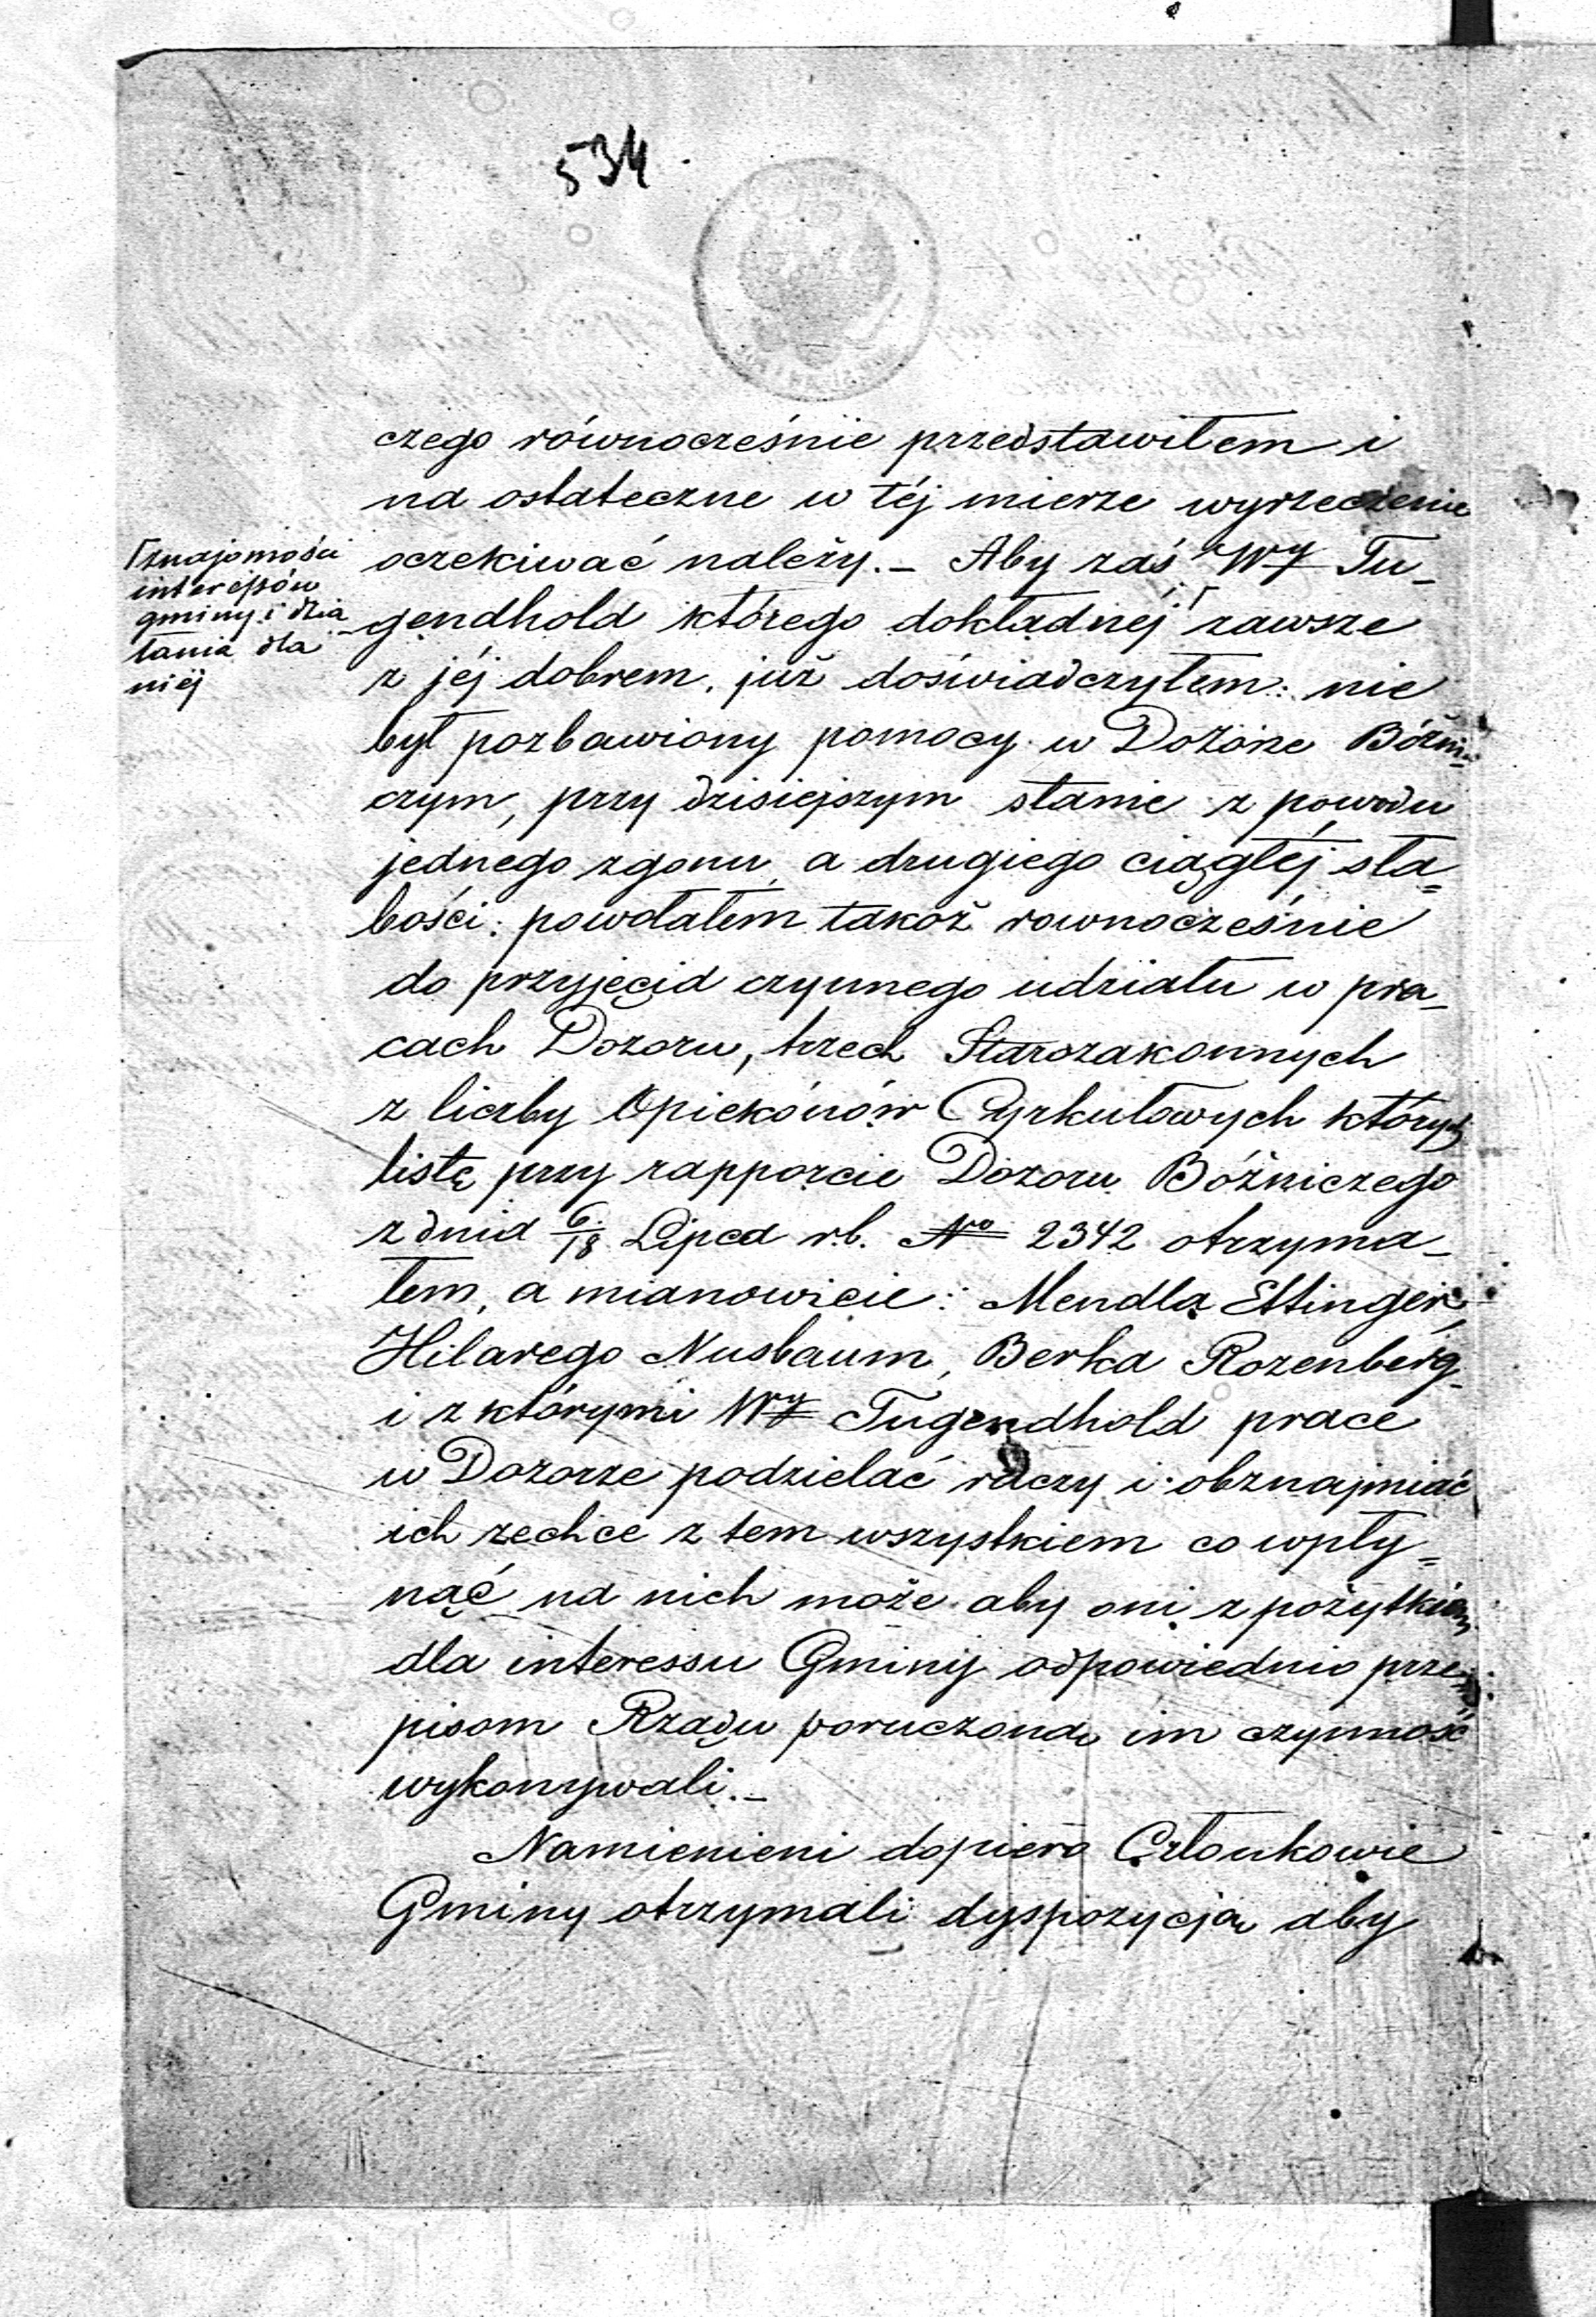 534
czego równocześnie przedstawiłem i
na ostateczne w téj mierze wyrzeczenie
oczekiwać należy. – Aby zaś Wy Tu-
gendhold którego dokładnéj Γ zawsze
Γ znajomości
interessów
gminy i dzia-
łania dla
niéj
z jéj dobrem, już doświadczyłem: nie
był pozbawiony pomocy w Dozorze Bóżni-
czym, przy dzisiejszym stanie z powodu
jednego zgonu, a drugiego ciągłéj sła=
bości: powołałem takoż rownocześnie
do przyjęcia czynnego udziału w pra-
cach Dozoru, trzech Starozakonnych
z liczby Opiekónów Cyrkułowych których
listę przy rapporcie Dozoru Bóżniczego
z dnia 6/18 Lipca r.b. No 2342 otrzyma-
łem, a mianowicie: Mendla Ettinger,
Hilarego Nusbaum, Berka Rozenberg
i z którymi Wy Tugendhold prace
w Dozorze podzielać raczy i obznajmiać
ich zechce z tem wszystkiem co wpły=
nąć na nich może aby oni z pożytkiem
dla interessu Gminy odpowiednio prze-
pisom Rządu poruczoną im czynność
wykonywali. –
Namienieni dopiero Członkowie
Gminy otrzymali dyspozycją aby